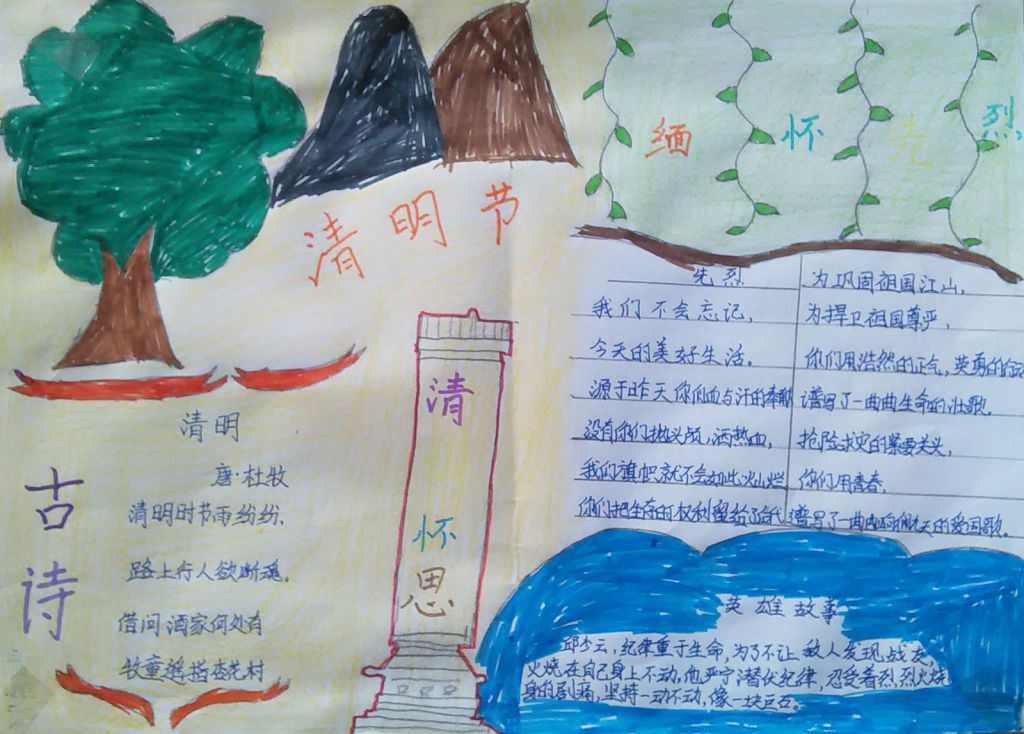 清明节
缅怀先烈
古诗
清明
唐·杜牧
清明时节雨纷纷.
路上行人欲断魂.
借问酒家何处有
牧童遥指杏花村
清明怀思
先烈
我们不会忘记,
今天的美好生活。
源于昨天你们血与汗的奉献
没有你们抛头颅,洒热血,
我们旗帜就不会如此火灿烂
你们把生存的权利留给了后代
为巩固祖国江山,
为捍卫祖国尊严,
你们用浩然的正气,英勇的
谱写了一曲曲生命的壮歌.
抢险救灾的紧要关头,
你们用青春,
谱写了一曲曲响彻天的爱国歌.
英雄故事
邱少云,纪律重于生命,为了不让敌人发现战友,
火烧在自己身上不动,他严守潜伏纪律,忍受着烈烈火烧
身的剧痛,坚持一动不动,像一块巨石。